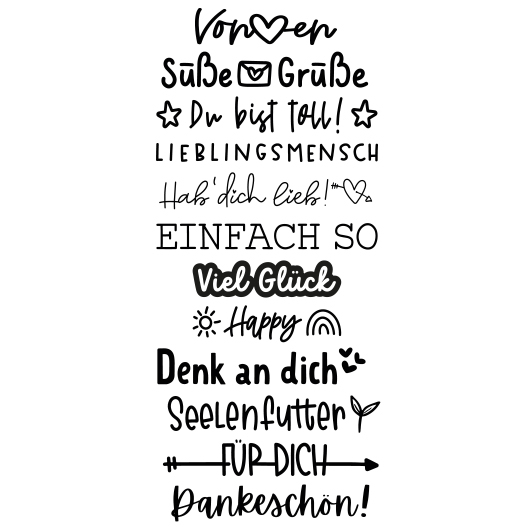 Von ♡en
Süße Grüße
Du bist toll!
LIEBLINGSMENSCH
Hab' dich lieb!
EINFACH SO
Viel Glück
Happy
Denk an dich
Seelenfutter
FÜR DICH
Dankeschön!